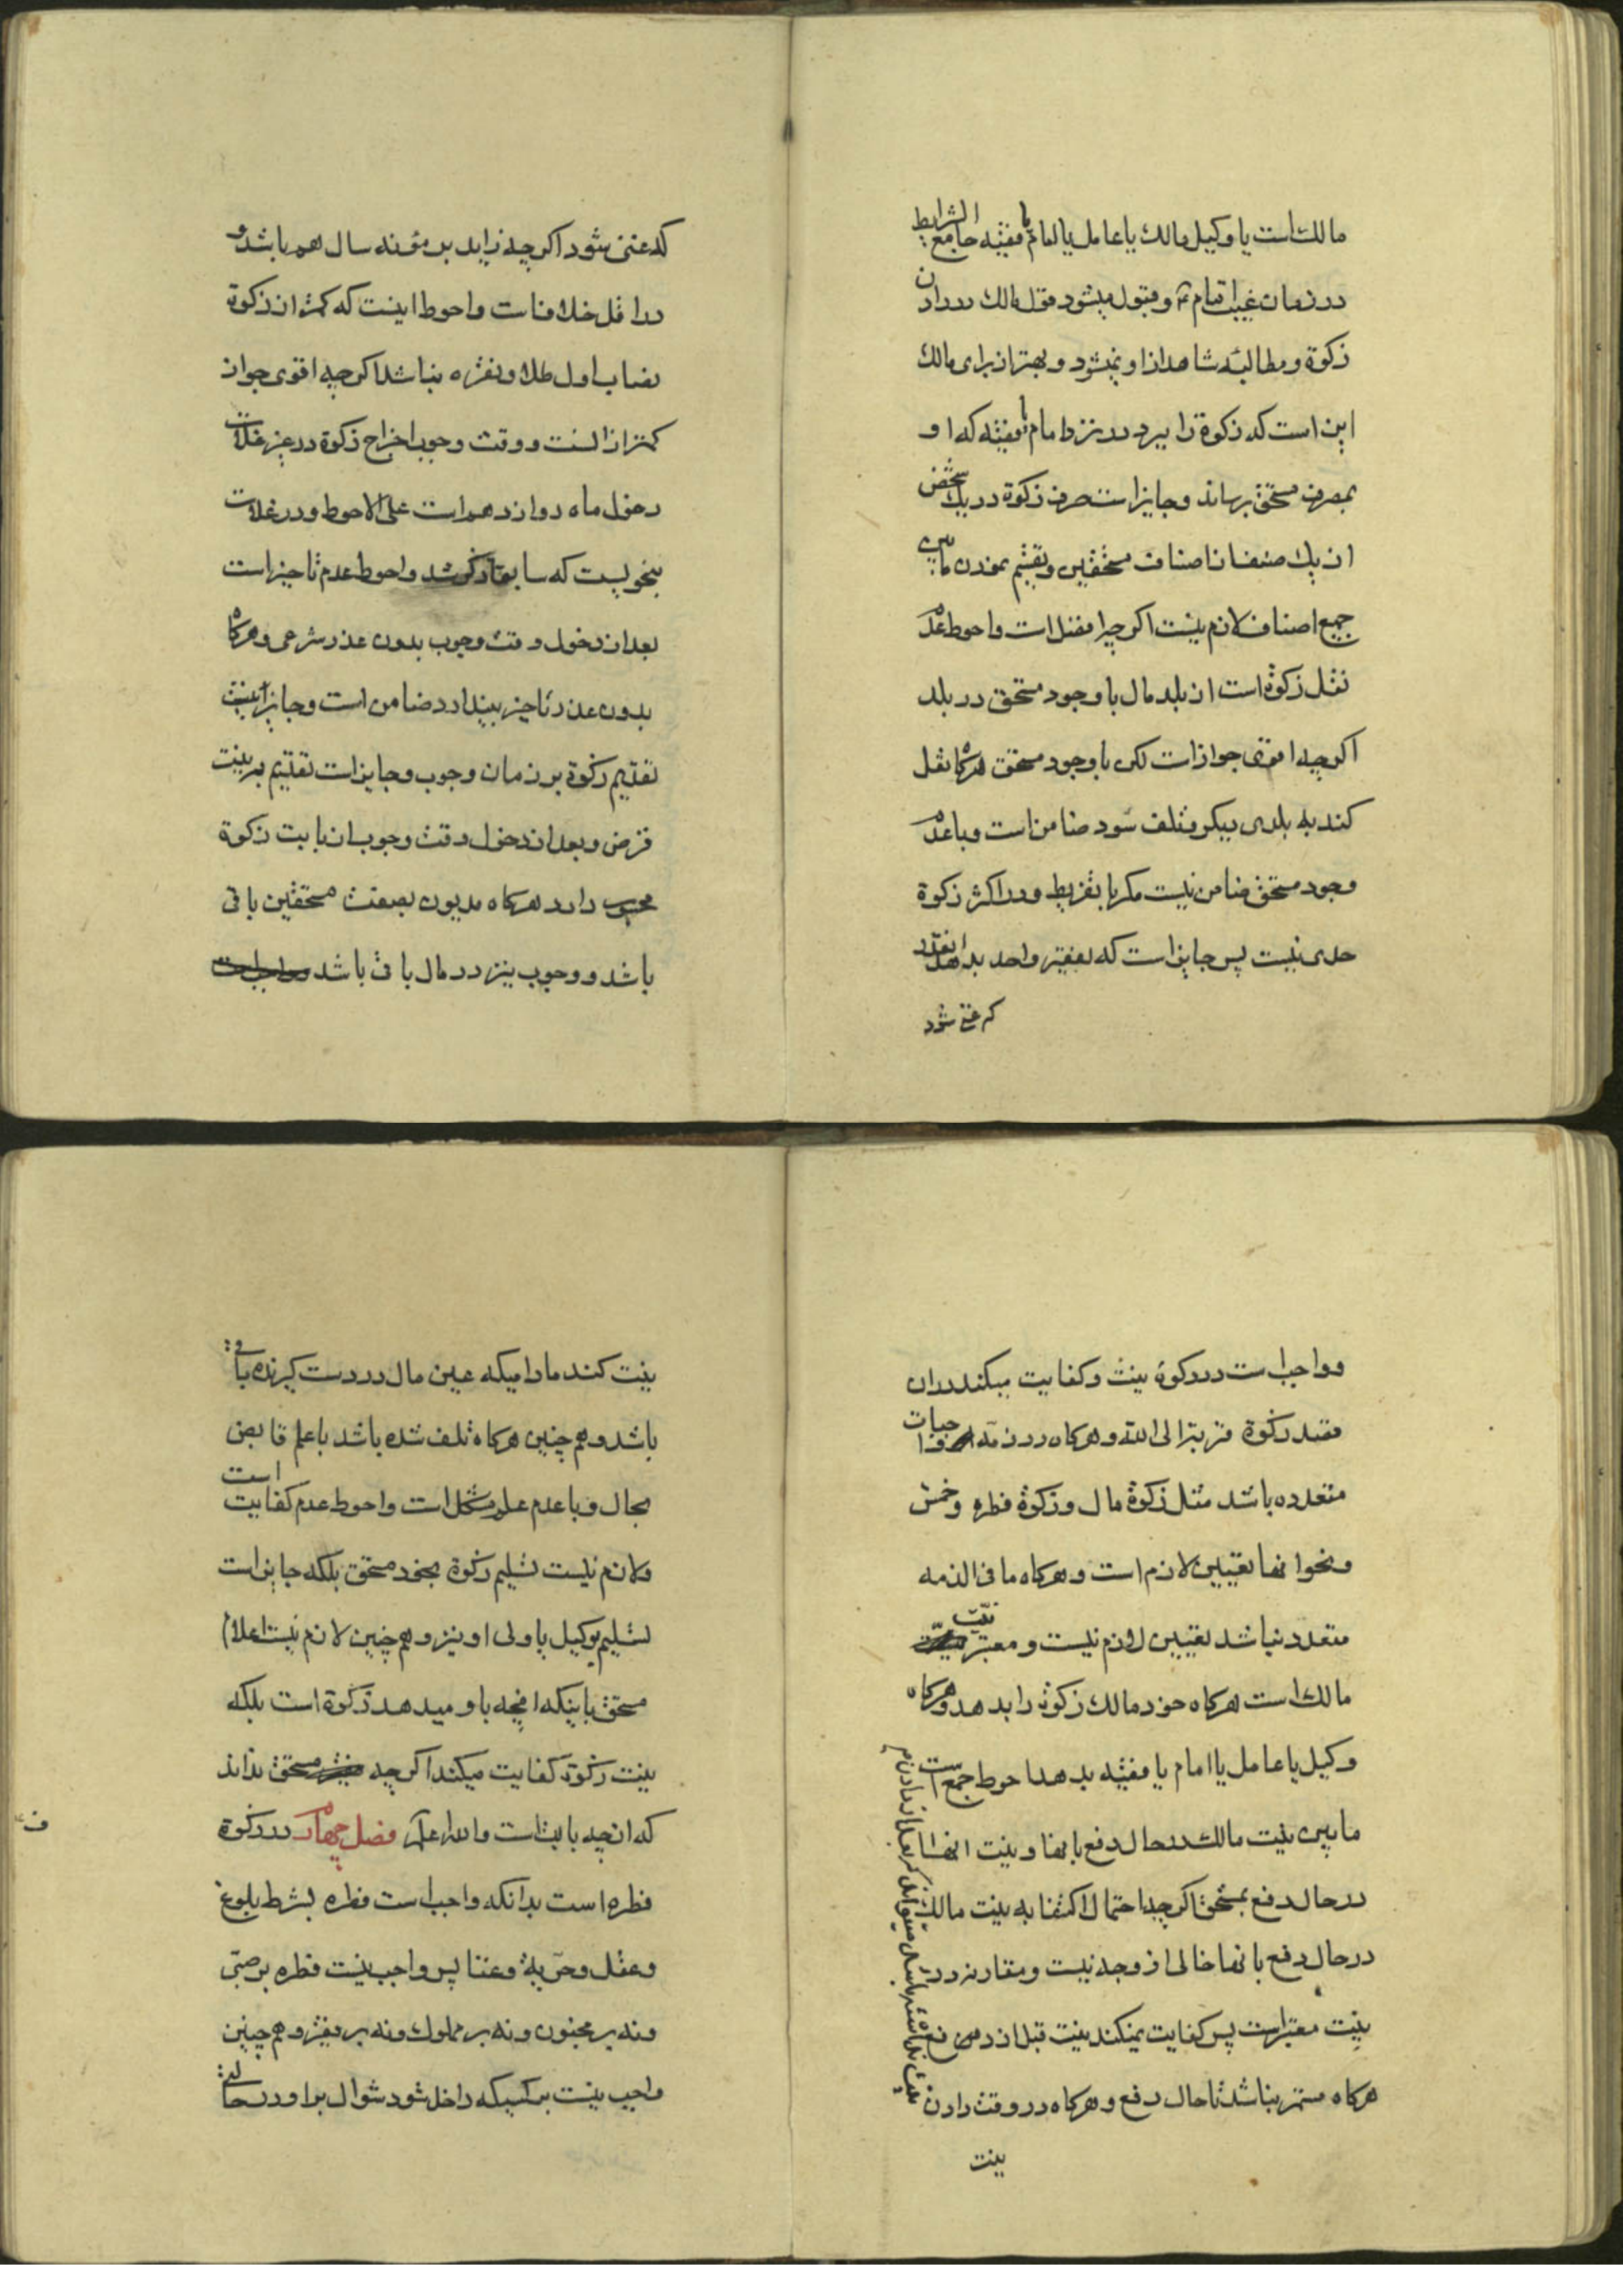 مالك است يا وكيل مالك يا عامل يا امام يا فقيه جامع الشرايط
در زمان غيبت امام ع و قبول ميشود قول مالك در دادن
زكوة و مطالبه شاهد از او نميشود و بهتر از براى مالك
اين است كه زكوة را ببرد در نزد امام يا فقيه كه او
بمصرف مستحق برساند و جايز است صرف زكوة در يك شخص
از يك صنف از اصناف مستحقين و تقسيم نمودن مابين
جميع اصناف لازم نيست اكر چه افضل است و احوط عدم
نقل زكوة است از بلد مال با وجود مستحق در بلد
اكر چه اقوى جواز است لكن با وجود مستحق هركاه نقل
كند به بلدى ديكر و تلف شود ضامن است و با عدم
وجود مستحق ضامن نيست مكر با تفريط و در اكثر زكوة
حدى نيست پس جايز است كه بفقير واحد بدهد انقدر
كه غنى شود
كه غنى شود اكر چه زايد بر مؤنه سال هم باشد و
در اقل خلاف است و احوط اينست كه كمتر از زكوة
نصاب اول طلا و نقره نباشد اكر چه اقوى جواز
كمتر از انست و وقت وجوب اخراج زكوة در غير غلات
دخول ماه دوازدهم است على الاحوط و در غلات
بنحويست كه سابقا ذكر شد و احوط عدم تاخير است
بعد از دخول وقت وجوب بدون عذر شرعى و هركاه
بدون عذر تاخير بيندازد ضامن است و جايز نيست
تقديم زكوة بر زمان وجوب و جايز است تقديم بر نيت
قرض و بعد از دخول وقت وجوب از بابت زكوة
محسوب دارد هركاه مديون بصفت مستحقين باقى
باشد و وجوب نيز در مال باقى باشد
و واجب است در زكوة نيت و كفايت ميكند در ان
قصد زكوة قربة الى الله و هركاه در ذمه واجبات
متعدده باشد مثل زكوة مال و زكوة فطره و خمس
و نحو انها تعيين لازم است و هركاه ما فى الذمه
متعدد نباشد تعيين لازم نيست و معتبر نيّت
مالك است هركاه خود مالك زكوة را بدهد و هركاه
وكيل يا عامل يا امام يا فقيه بدهد احوط جمع است
مابين نيت مالك در حال دفع بانها و نيت انها
در حال دفع بمستحق اكر چه احتمال اكتفا به نيت مالك
در حال دفع بانها خالى از وجه نيست و مقارنه در
نيت معتبر است پس كفايت نميكند نيت قبل از دفع
هركاه مستمر نباشد تا حال دفع و هركاه در وقت دادن
نيت
نيت كند مادامیكه عين مال در دست كيرنده باقى
باشد و هم چنين هركاه تلف شده باشد با علم قابض
بحال و با عدم علم مشكل است و احوط عدم كفايت است
و لازم نيست تسليم زكوة بخود مستحق بلكه جايز است
تسليم بوكيل يا ولى او نيز و هم چنين لازم نيست اعلام
مستحق باينكه انچه باو ميدهد زكوة است بلكه
نيت زكوة كفايت ميكند اكر چه مستحق نداند
كه انچه بابت است و الله اعلم فصل چهارم در زكوة
فطره است بدانكه واجب است فطره بشرط بلوغ
و عقل و حرّية و غنا پس واجب نيست فطره بر صبىّ
و نه بر مجنون و نه بر مملوك و نه بر فقير و هم چنين
واجب نيست بر كسيكه داخل شود شوال بر او در حالتى